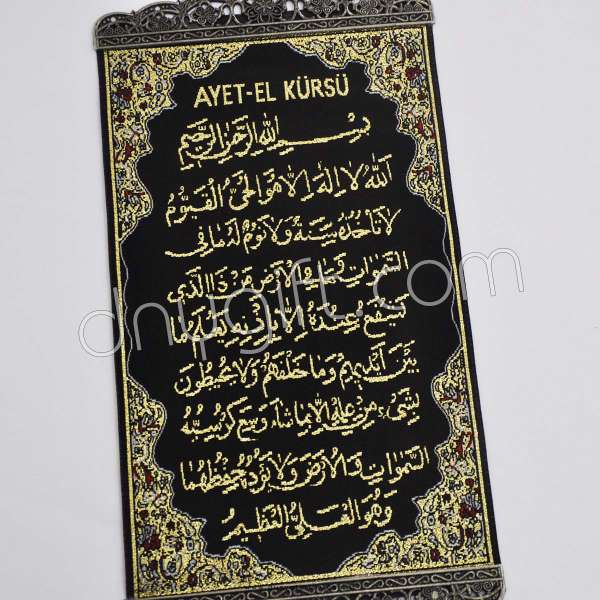 AYET-EL KÜRSÜ
بسم الله الرحمن الرحيم
الله لا اله الا هو الحي القيوم
لا تأخذه سنة ولا نوم له ما في
السموات وما في الارض من ذا الذي
يشفع عنده الا باذنه يعلم ما
بين ايديهم وما خلفهم ولا يحيطون
بشيء من علمه الا بما شاء وسع كرسيه
السموات والارض ولا يؤده حفظهما
وهو العلي العظيم
dnygift.com